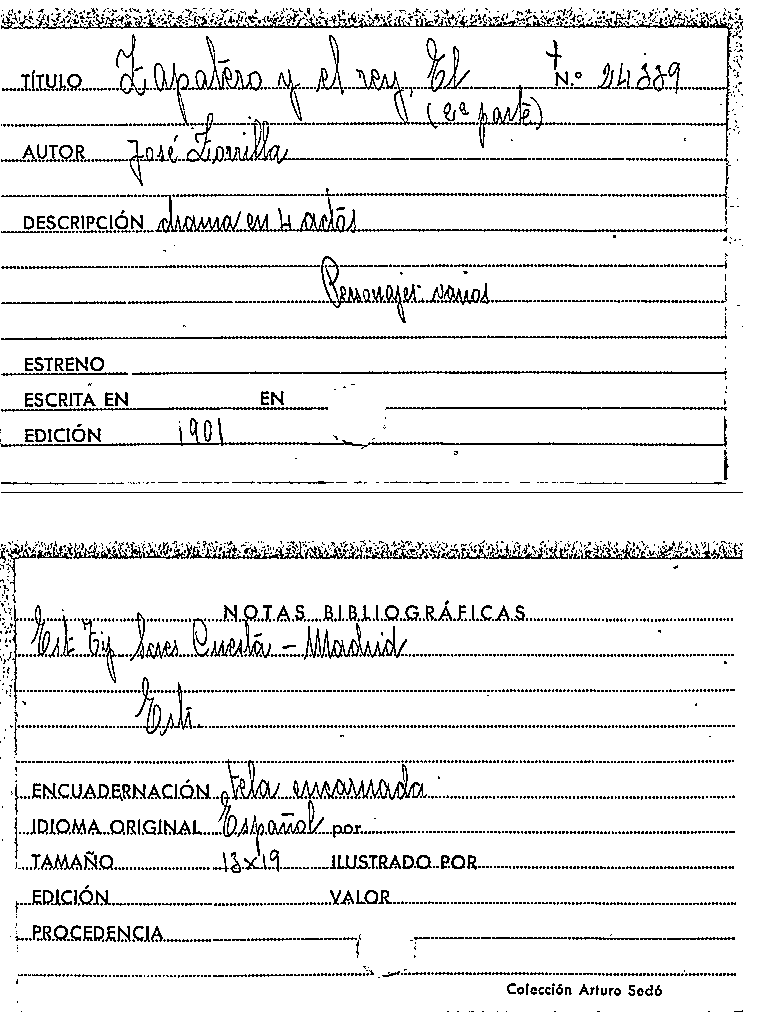 TÍTULO Zapatero y el rey, El N.º 24339
(2ª parte)
AUTOR José Zorrilla
DESCRIPCIÓN drama en 4 actos
Personajes: varios
ESTRENO
ESCRITA EN EN
EDICIÓN 1901
NOTAS BIBLIOGRÁFICAS
Est Tip Sucs Cuesta - Madrid
Est.
ENCUADERNACIÓN tela encarnada
IDIOMA ORIGINAL Español por
TAMAÑO 13x19 ILUSTRADO POR
EDICIÓN VALOR
PROCEDENCIA
Colección Arturo Sedó